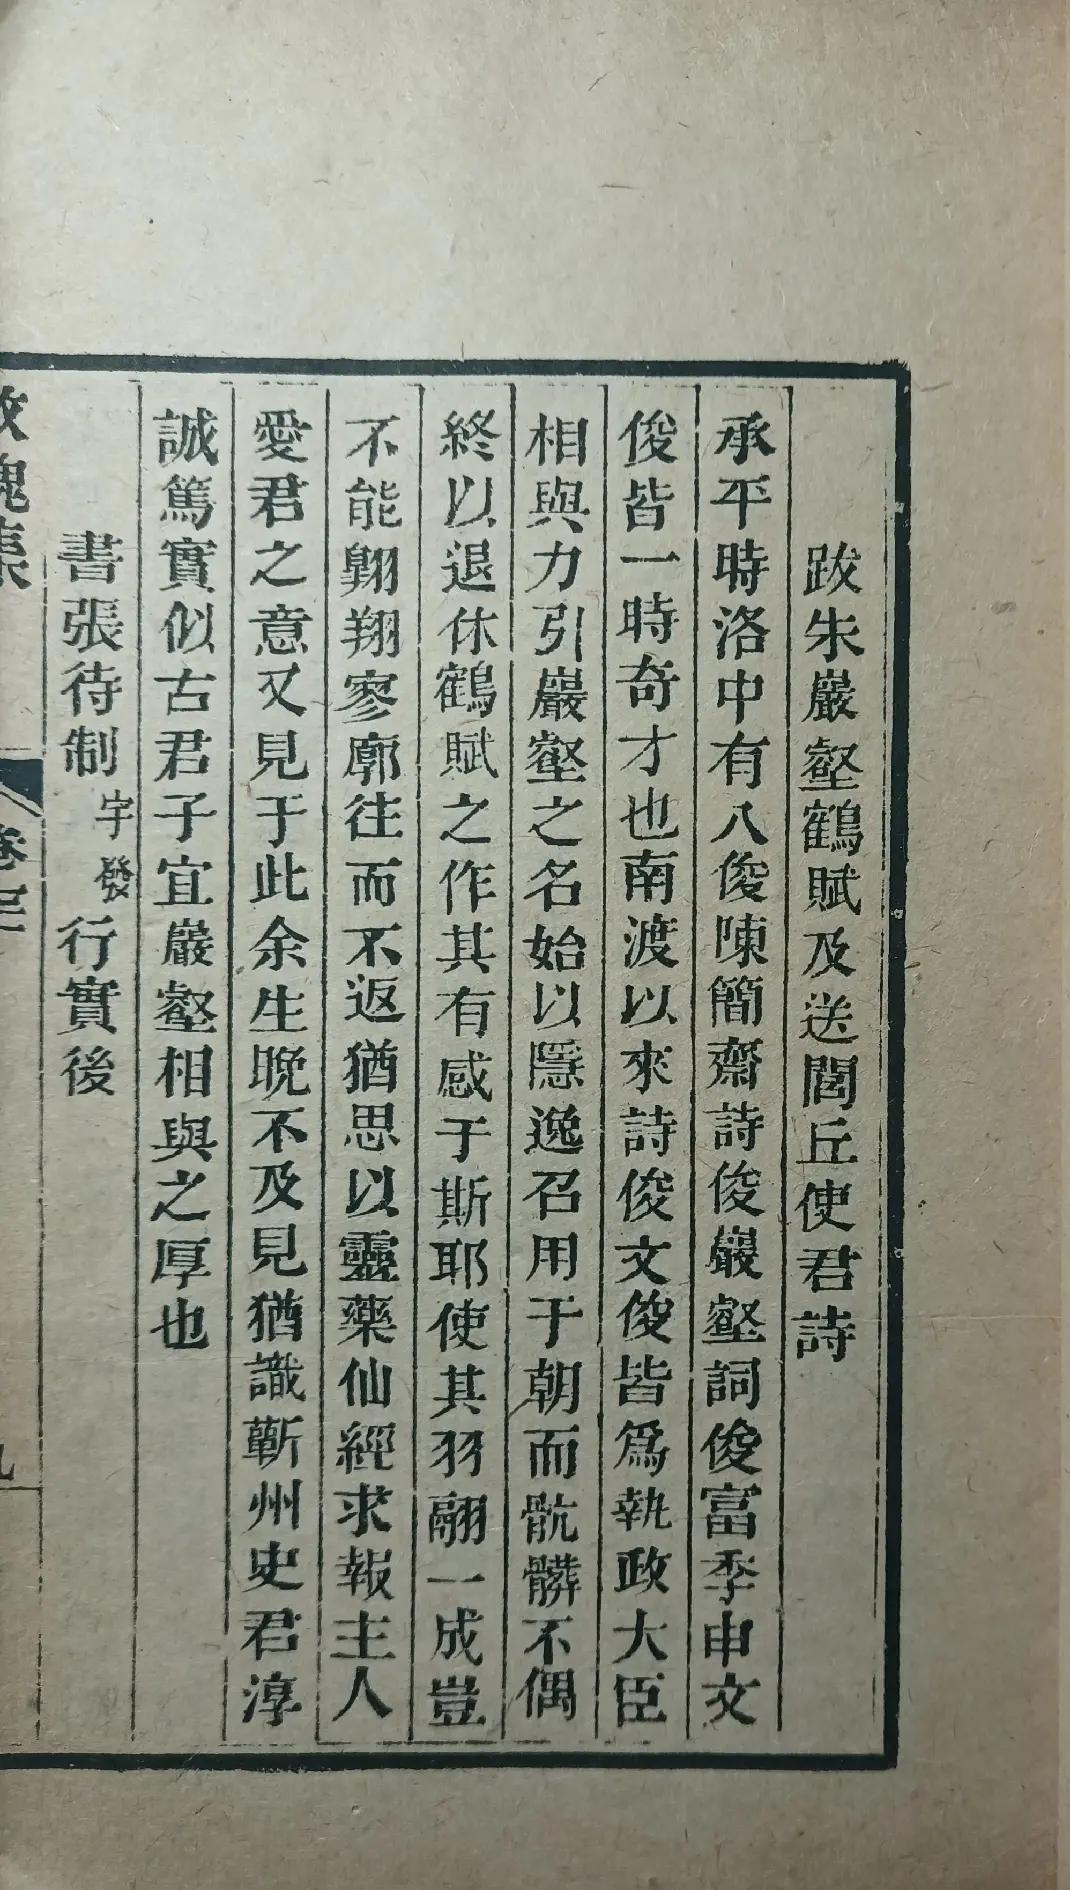 跋朱巖壑鶴賦及送閭丘使君詩
承平時洛中有八俊陳簡齋詩俊巖壑詞俊富季申文
俊皆一時奇才也南渡以來詩俊文俊皆爲執政大臣
相與力引巖壑之名始以隱逸召用于朝而骯髒不偶
終以退休鶴賦之作其有感于斯耶使其羽翮一成豈
不能翺翔寥廓往而不返猶思以靈藥仙經求報主人
愛君之意又見于此余生晚不及見猶識蘄州史君淳
誠篤實似古君子宜巖壑相與之厚也
書張待制宇發行實後
攻媿集